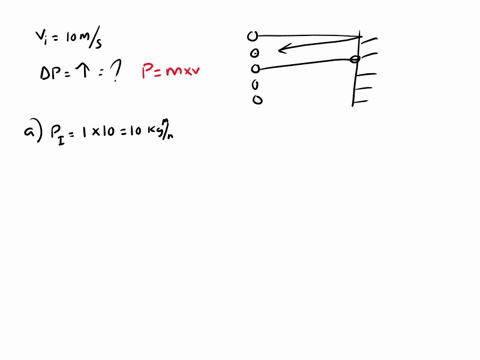 Vi = 10 m/s
DP = ↑ = ? P = m×v
a) P_I = 1 × 10 = 10 kg m/n